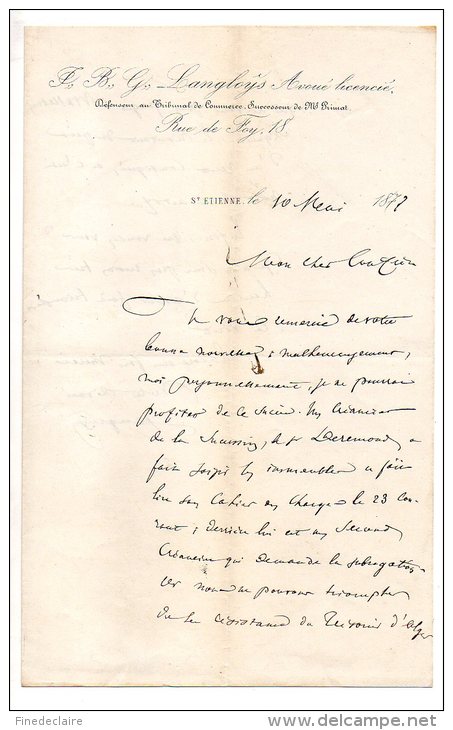 F. B. G. Langloÿs Avoué licencié,
Défenseur au Tribunal de Commerce, Successeur de Mr Primat
Rue de Foy, 18
St ETIENNE, le 10 Mai 1877
Mon cher
Je vous remercie de votre
bonne nouvelle ; malheureusement,
moi personnellement, je ne pourrai
profiter de ce succès. Un créancier
de la Succession, le sr Deremond, a
fait saisir les immeubles et fait
lire son Cahier des Charges le 23 cou-
rant ; derrière lui est un second
créancier qui demande la subrogation.
Or nous ne pouvons triompher
de la résistance du Trésorier d'Alger
Finedeclaire
www.delcampe.net